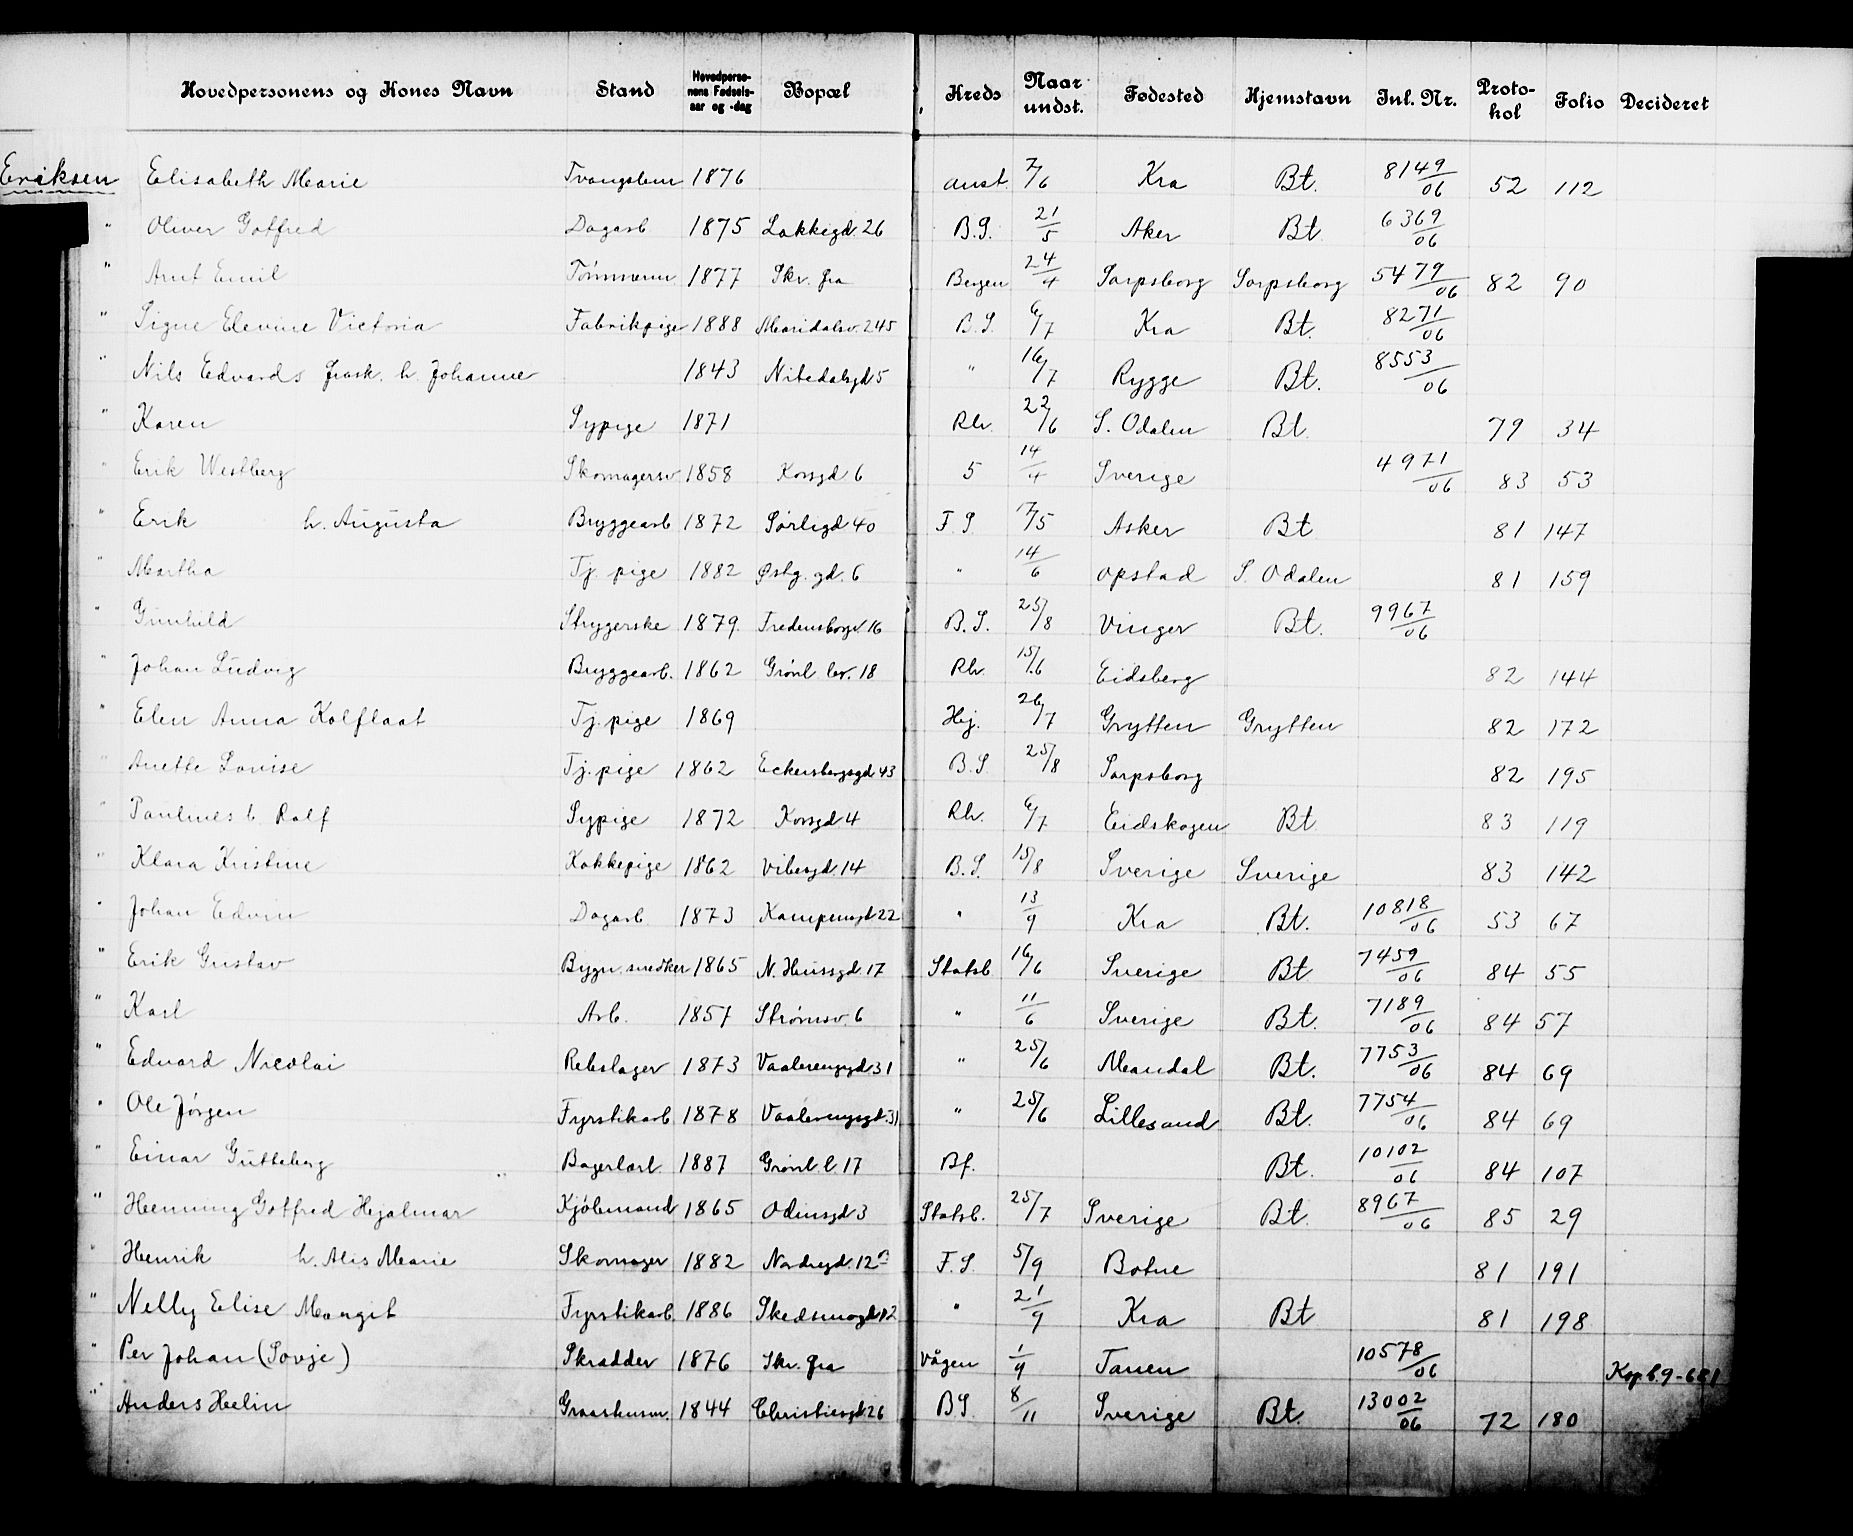 Hovedpersonens og Kones Navn Stand Hovedpersonens Fødselsaar og -dag Bopæl Kreds Naar undst. Fødested Hjemstavn Inl. Nr. Protokol Folio Decideret
Eriksen Elisabeth Marie Tvangslem 1876 anst. 7/6 Kra Bt. 8149/06 52 112
" Oliver Gotfred Dagarb 1875 Lakkegd. 26 B.S. 21/5 Aker Bt. 6369/06
" Arnt Emil Tømmerm 1877 Skr. fra Bergen 24/4 Sarpsborg Sarpsborg 5479/06 82 90
" Signe Elevine Victoria Fabrikpige 1888 Maridalsv. 245 B.S. 6/7 Kra Bt. 8271/06
" Nils Edvards frask. h. Johanne 1843 Nitedalsgd 5 " 16/7 Rygge Bt. 8553/06
" Karen Sypige 1871 Rh. 22/6 S. Odalen Bt. 79 34
" Erik Westberg Skomagersv. 1858 Korsgd 6 5 14/4 Sverige 4971/06 83 53
" Erik h. Augusta Bryggearb 1872 Sørligd 40 F.S. 7/5 Asker Bt 81 147
" Martha Tj. pige 1882 Østg. gd. 6 " 14/6 Opstad S. Odalen 81 159
" Gunhild Strygerske 1879. Fredensborgv. 16 B.S. 25/8 Vinger Bt. 9967/06
" Johan Ludvig Bryggearb. 1862 Grønl. lev. 18 Rh. 15/6 Eidsberg 82 144
" Elen Anna Kolflaat Tj. pige 1869 Hej. 26/7 Grytten Grytten 82 172
" Anette Lovise Tj. pige 1862 Eckersbergsgd 43 B.S. 25/8 Sarpsborg 82 195
" Paulines b. Ralf Sypige 1872 Korsgd 4 Rh. 6/7 Eidskogen Bt 83 119
" Klara Kristine Kokkepige 1862 Vibesgd. 14 B.S. 15/8 Sverige Sverige 83 142
" Johan Edvin Dagarb. 1873 Kampensgd 22 " 13/9 Kra Bt. 10818/06 53 67
" Erik Gustav Bygn. snedker 1865 N. Hussgd. 17 Statsb 16/6 Sverige Bt. 7459/06 84 55
" Karl Arb. 1857 Strømsv. 6 " 11/6 Sverige Bt. 7189/06 84 57
" Edvard Nicolai Rebslager 1873 Vaalerenggd 31 " 25/6 Mandal Bt. 7753/06 84 69
" Ole Jørgen Fyrstikarb 1878 Vaalerengsgt. 31 " 25/6 Lillesand Bt. 7754/06 84 69
" Einar Gutteberg Bagerlærl. 1887 Grønl. l. 17 Bf. Bt. 10102/06 84 107
" Henning Gotfred Hjalmar Kjøbmand 1865 Odinsgd 3 Statsb. 25/7 Sverige Bt. 8967/06 85 29
" Henrik h. Alis Marie Skomager 1882 Nordregd. 12 F.S. 5/9 Botne 81 191
" Nelly Elise Margit Fyrstikarb. 1886 Skedsmogd 12 " 21/9 Kra Bt 81 198
" Per Johan (Sovje) Skrædder 1876 Skr. fra Vågen 1/9 Tanen 10578/06 Kop. b. 9-681
" Anders Helin Graastensm. 1844 Christiesgd. 26 BS 8/11 Sverige Bt. 13002/06 72 180